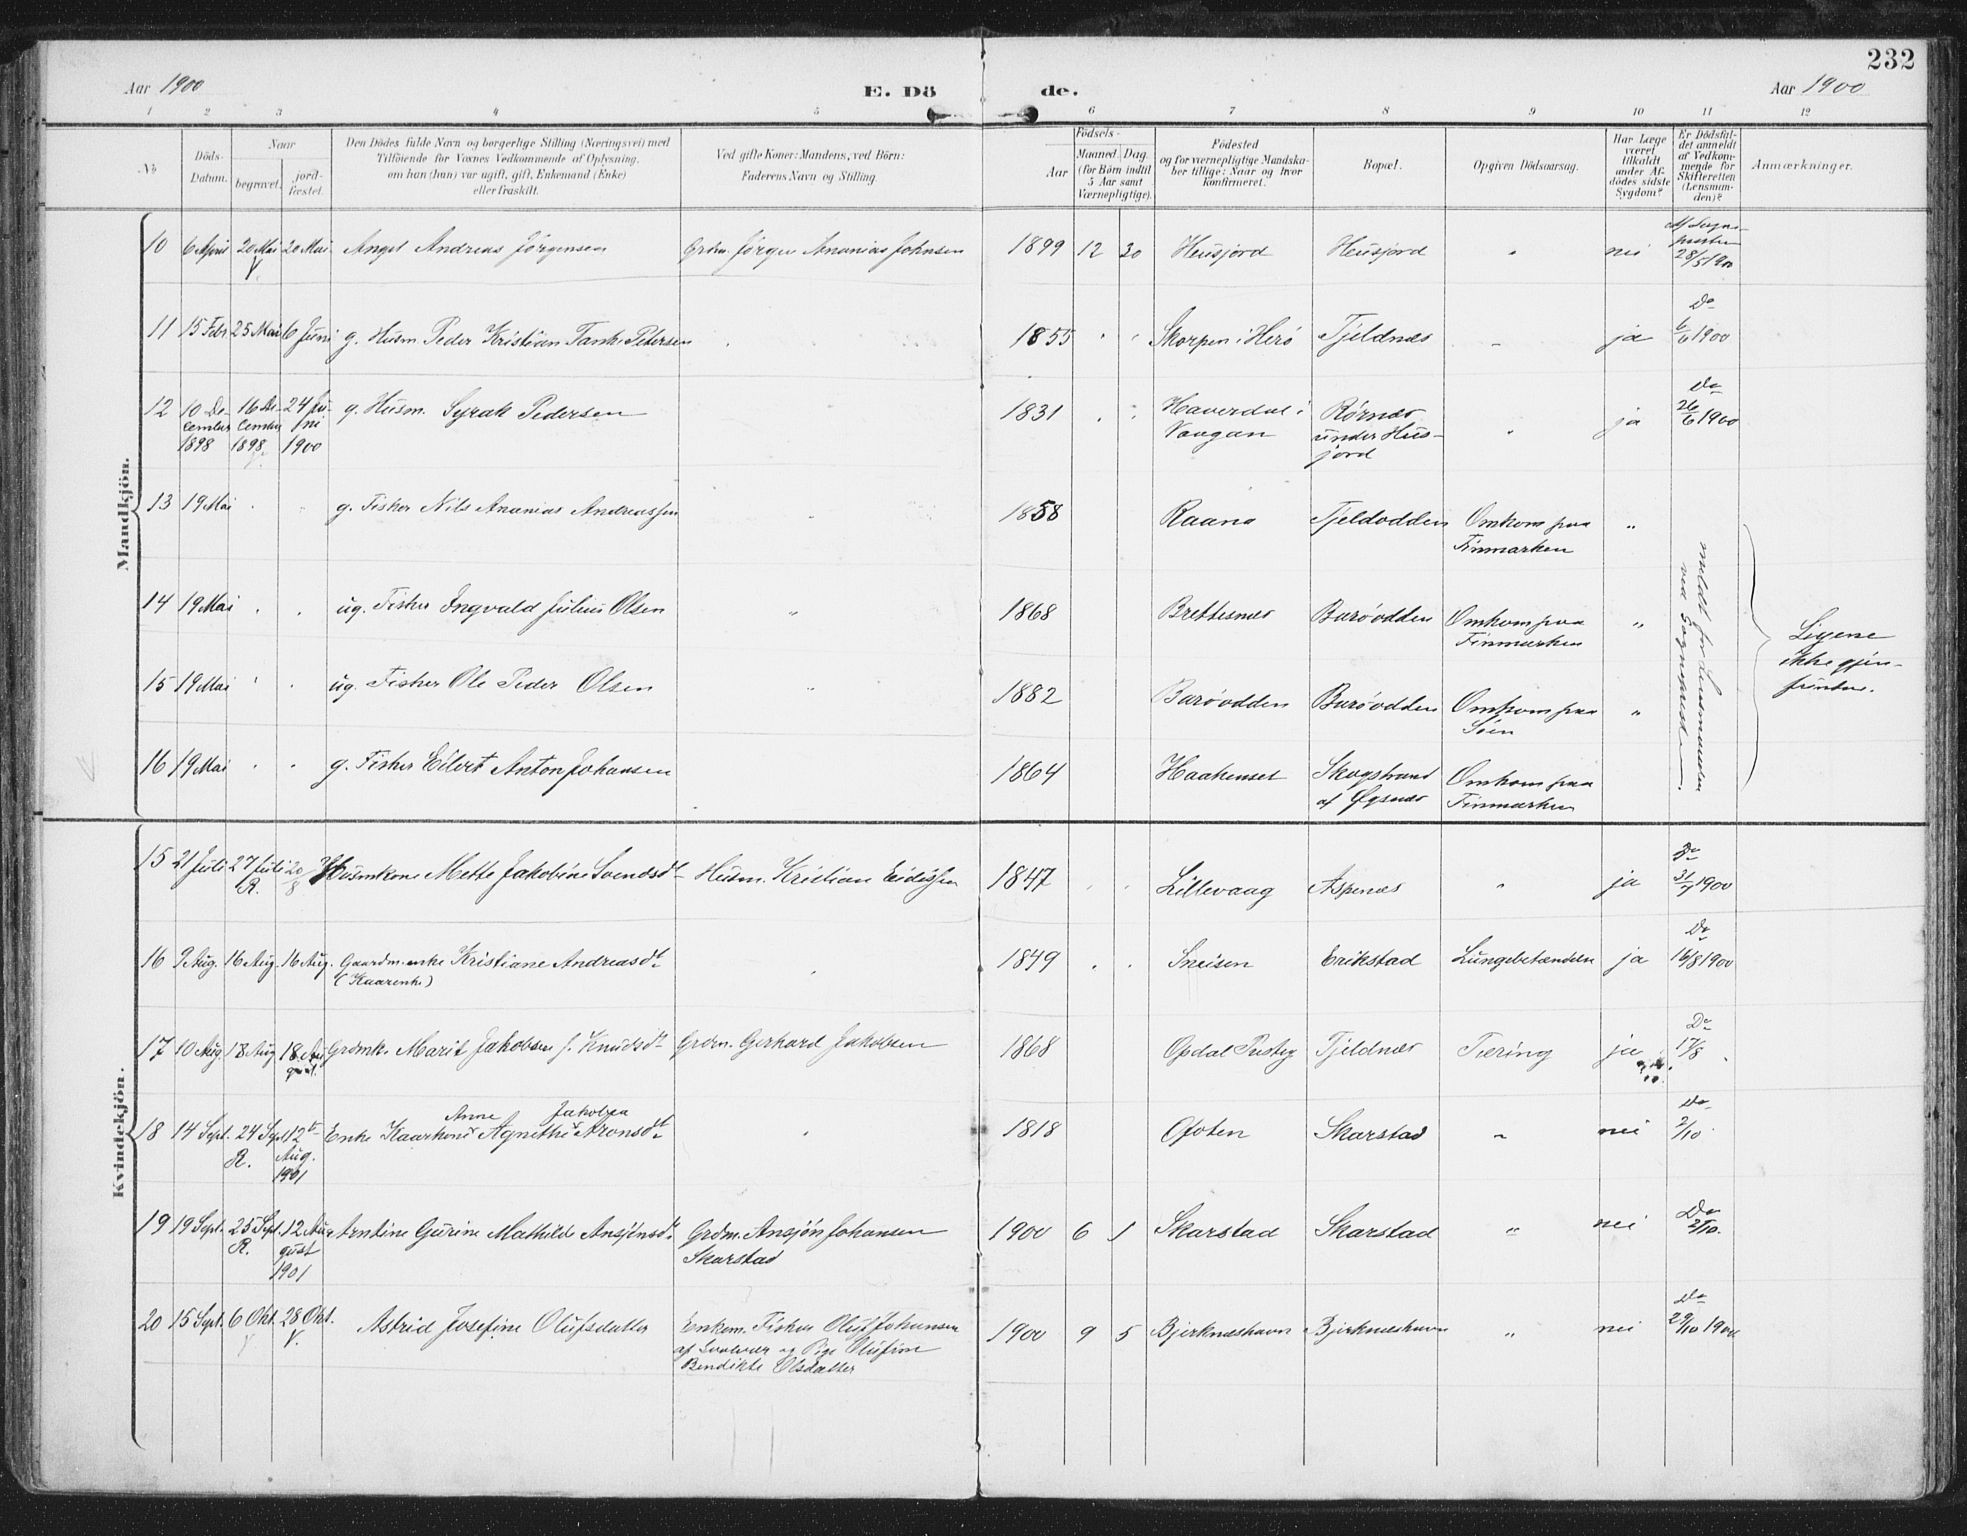 232
Aar 1900 E. Dö de. Aar 1900
1 2 3 4 5 6 7 8 9 10 11 12
No
Döds-Datum.
Naar
begravet.
jord-fæstet.
Den Dödes fulde Navn og borgerlige Stilling (Næringsvei) med
Tilföiende for Voxnes Vedkommende af Oplysning.
om han (hun) var ugift, gift, Enkemand (Enke)
eller fraskilt.
Ved gifte Koner: Mandens, ved Börn:
Faderens Navn og Stilling.
Födsels-
Aar
Maaned. Dag.
(for Börn indtil
5 Aar samt
Værnepligtige).
Födested
og for værnepligtige Mandska-
ber tillige: Naar og hvor
konfirmeret.
Bopæl.
Opgiven Dödsaarsag.
Har Læge
været
tilkaldt
under Af-
dödes sidste
Sygdom?
Er Dödsfal-
det anmeldt
af Vedkom-
mende for
Skifteretten
(Lensman-
den)?
Anmærkninger.
Mandkjön.
10 6 April 20 Mai 20 Mai Angel Andreas Jörgensen Grdm. Jörgen Ananias Johnsen 1899 12 30 Heusjord Heusjord " nei
V. 28/5 1900
11 15 Febr 25 Mai 6 Juni g. Husm. Peder Kristian Tank Petersen 1855 " " Skorpen i Herö Tjeldnæs " ja Do 6/6 1900
12 10 De-cember 1898 16 De-cember 1898 24 Ju-ni 1900 g. Husm. Syrak Pedersen 1831 " " Haverdal i Vaagan Rörnæs under Hus-jord " ja Do 26/6 1900
13 19 Mai " " g. Fisker Nils Ananias Andreassen 1858 Raana Tjeldodden Omkom paa Finmarken "
14 19 Mai " " ug. Fisker Ingvald Julius Olsen " 1868 Brettesnæs Barövdden Omkom paa Finmarken "
15 19 Mai " " ug. Fisker Ole Peder Olsen " 1882 Baröodden Baröodden Omkom paa Söen "
16 19 Mai " " g. Fisker Eilert Anton Johansen 1864 Haakenset Skogstrand af Øgsnæs Omkom paa Finmarken
meldt for Lensmanden
ved Sognepresten.
Ligene
ikke gjen-
fundne.
Kvindekjön.
15 21 Juli 27 Juli R. 20/8 Husmkone Mette Jakobine Svendsdt Husm. Kristian Eidissen 1847 " " Lillevaag Aspenæs " ja Do 31/7 1900
16 9 Aug. 16 Aug. 16 Aug. Gaardm.enke Kristiane Andreasdt " 1849 " " Sneisen Erikstad Lungebetændelse ja Do 16/8 1900
(Kaarenke)
17 10 Aug. 18 Aug 18 Au-gust. Grdmk. Marit Jakobsen f. Knudsdt Grdm. Gerhard Jakobsen 1868 Opdal Presteg Tjeldnæs Tæring ja Do 17/8
18 14 Sept. 24 Sept R. 12te Aug. 1901 Enke Kaarkone Anne Agnethe Jakobea Aronsdt " 1818 Ofoten Skarstad " nei Do 2/10
19 19 Sept. 25 Sept. R. 12 Au-gust 1901 Arntine Gurine Mathild Ansjönsdt. Grdm. Ansjön Johansen Skarstad 1900 6 1 Skarstad Skarstad " nei Do 2/10.
20 15 Sept. 6 Okt. 28 Okt. V. Astrid Josefine Olufsdatter Enkem. Fisker Oluf Johansen 1900 9 5 Bjerknæshavn Bjerknæshavn " nei Do 29/10 1900
af Svolvær og Pige Olufine
Bendikte Olsdatter